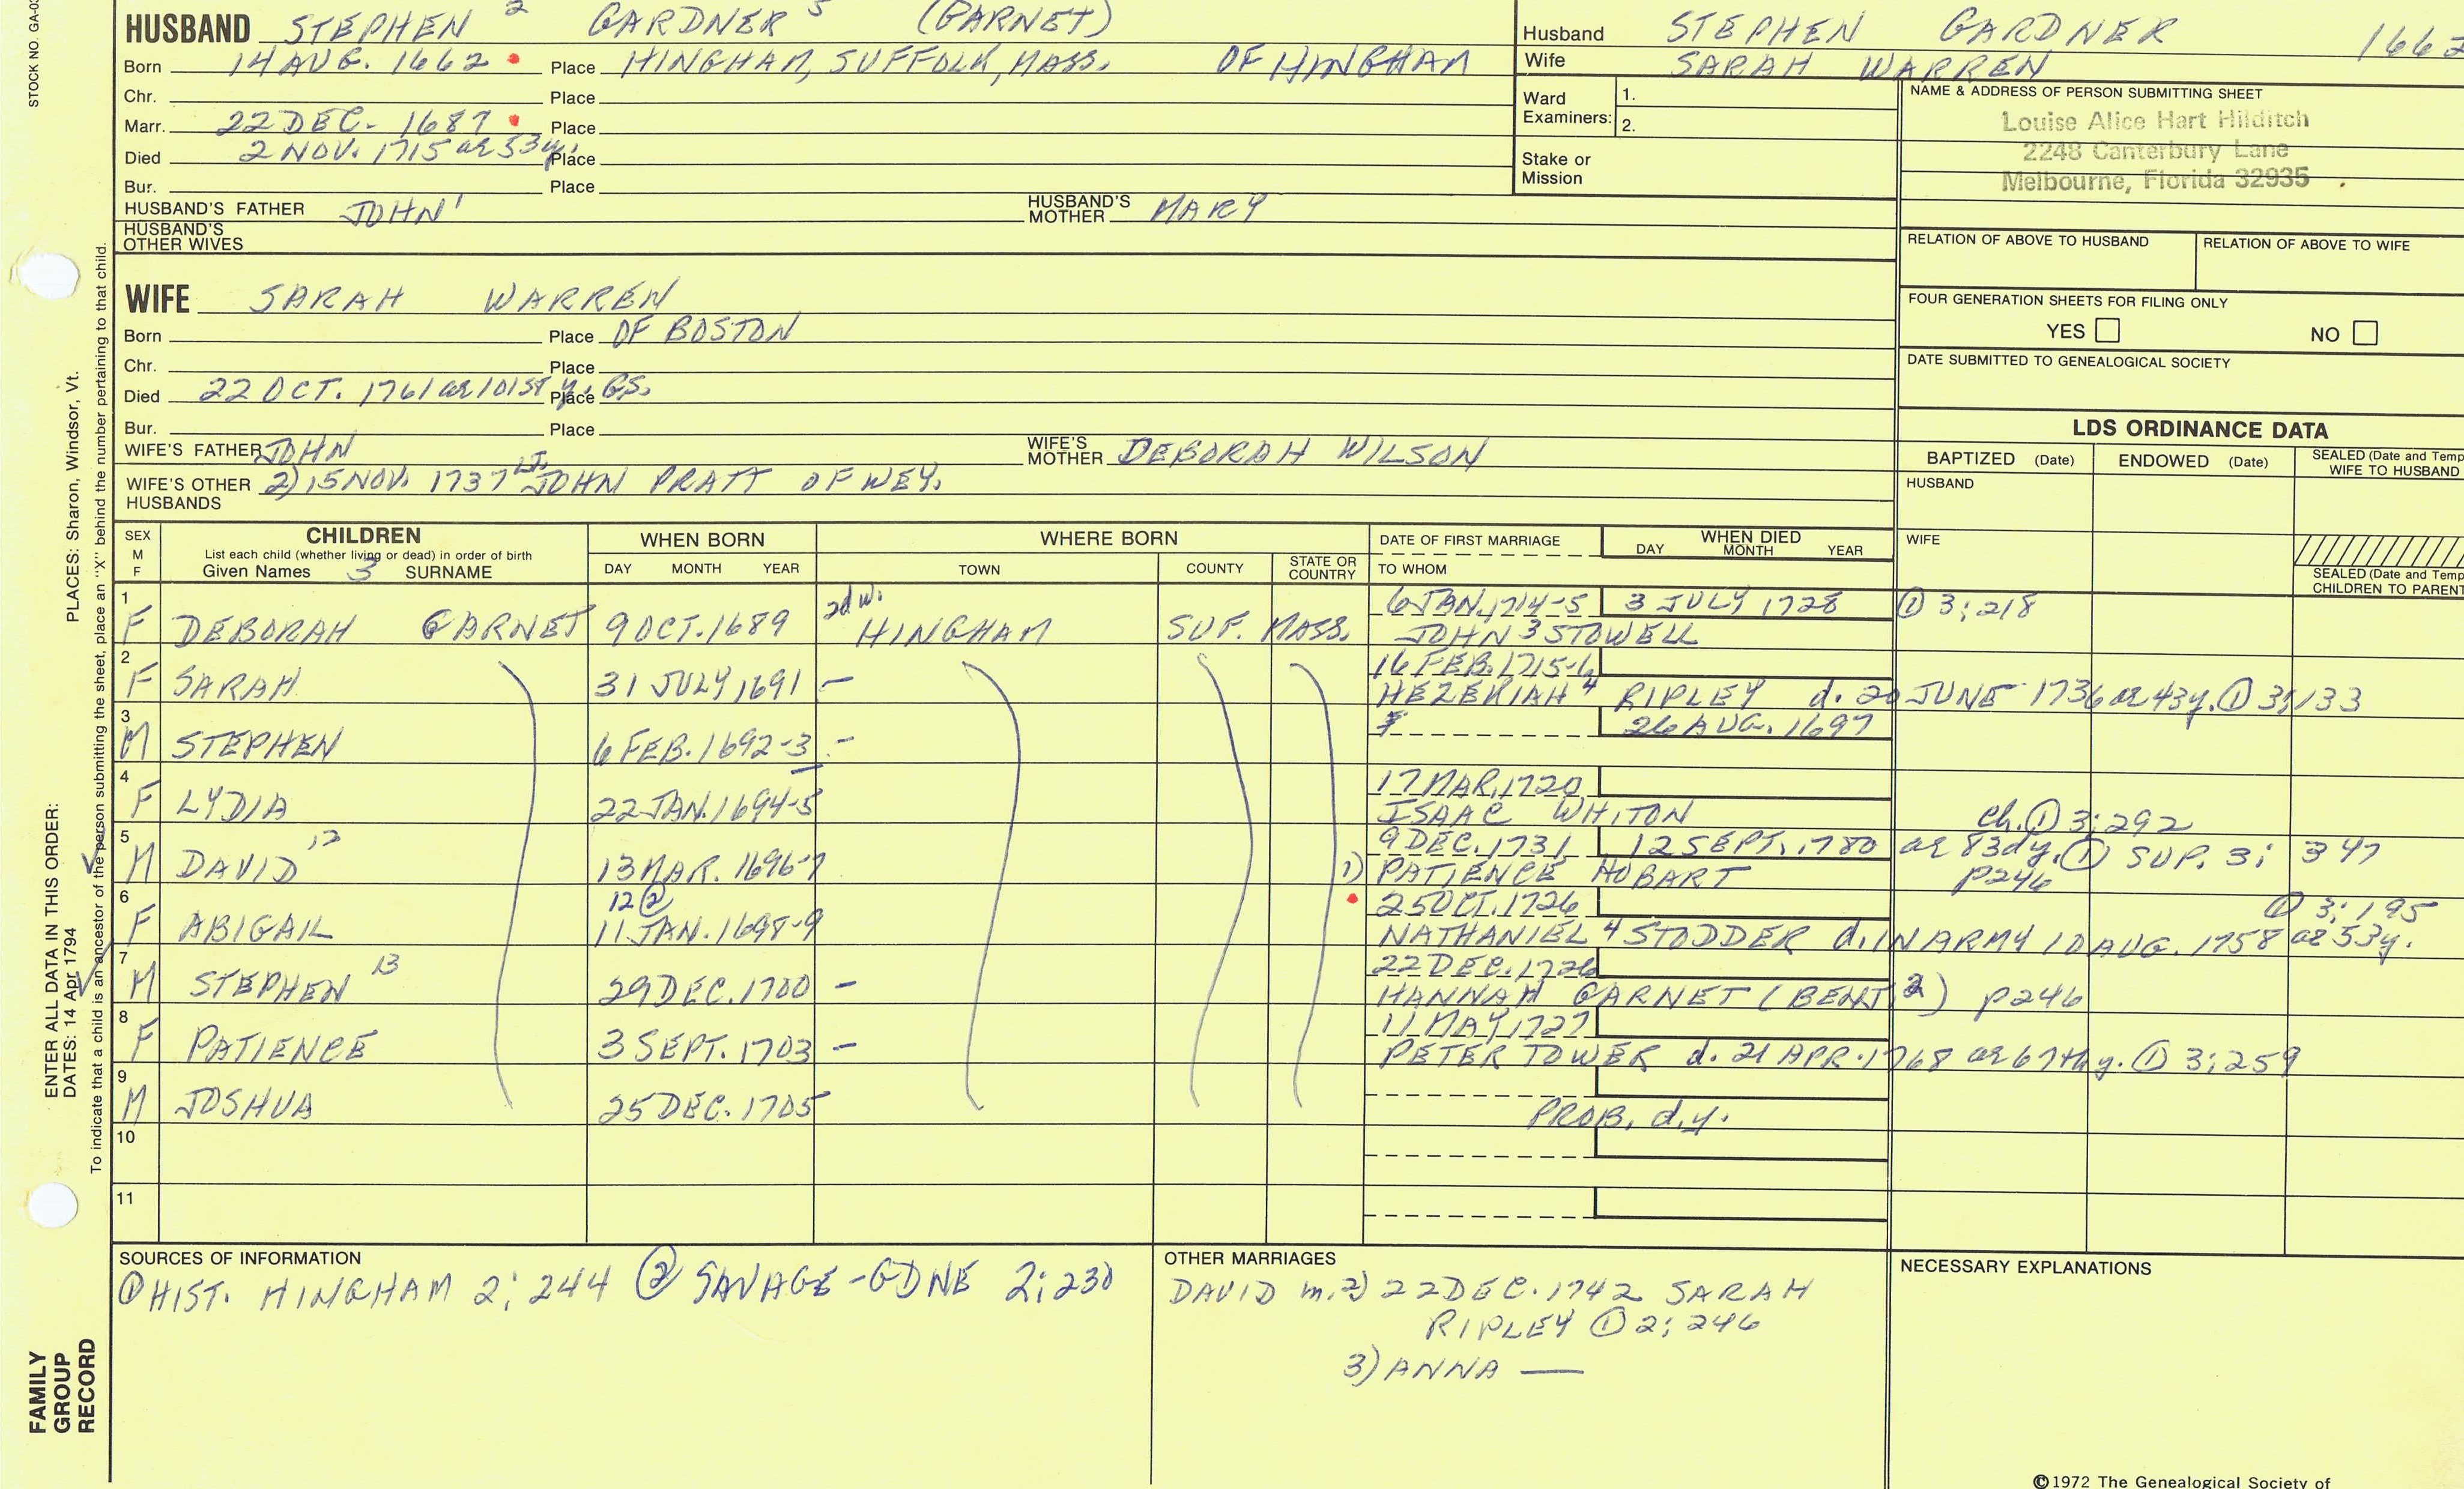 STOCK NO. GA-0
HUSBAND STEPHEN 2 GARDNER 5 (GARNET)
Born 14 AUG. 1662 Place HINGHAM, SUFFOLK, MASS. OF HINGHAM
Chr. Place
Marr. 22 DEC. 1687 Place
Died 2 NOV. 1715 ae 53 y. Place
Bur. Place
HUSBAND'S FATHER JOHN 1 HUSBAND'S MOTHER MARY
HUSBAND'S OTHER WIVES
Husband STEPHEN GARDNER 1662
Wife SARAH WARREN
Ward Examiners: 1.
2.
Stake or Mission
NAME & ADDRESS OF PERSON SUBMITTING SHEET
Louise Alice Hart Hilditch
2248 Canterbury Lane
Melbourne, Florida 32935
RELATION OF ABOVE TO HUSBAND RELATION OF ABOVE TO WIFE
FOUR GENERATION SHEETS FOR FILING ONLY
YES NO
DATE SUBMITTED TO GENEALOGICAL SOCIETY
WIFE SARAH WARREN
Born Place OF BOSTON
Chr. Place
Died 22 OCT. 1761 ae 101st y. GS. Place
Bur. Place
WIFE'S FATHER JOHN WIFE'S MOTHER DEBORAH WILSON
WIFE'S OTHER HUSBANDS 2) 15 NOV. 1737 LT. JOHN PRATT OF WEY.
LDS ORDINANCE DATA
BAPTIZED (Date) ENDOWED (Date) SEALED (Date and Temp
WIFE TO HUSBAND
HUSBAND
WIFE
SEALED (Date and Temp
CHILDREN TO PARENT
SEX M F CHILDREN WHEN BORN WHERE BORN DATE OF FIRST MARRIAGE WHEN DIED
List each child (whether living or dead) in order of birth DAY MONTH YEAR
Given Names 3 SURNAME DAY MONTH YEAR TOWN COUNTY STATE OR COUNTRY TO WHOM
1 2d w. 6 JAN. 1714-5 3 JULY 1728 ① 3:218
F DEBORAH GARNET 9 OCT. 1689 HINGHAM SUF. MASS. JOHN 3 STOWELL
2 16 FEB. 1715-6
F SARAH 31 JULY 1691 – HEZEKIAH 4 RIPLEY d. 20 JUNE 1736 ae 43 y. ① 3:133
3 26 AUG. 1697
M STEPHEN 6 FEB. 1692-3 –
4 17 MAR. 1720
F LYDIA 22 JAN. 1694-5 ISAAC WHITON ch. ① 3:292
5 12 9 DEC. 1731 12 SEPT. 1780 ae 83d y. ① SUP. 3: 347
M DAVID 13 MAR. 1696-7 1) PATIENCE HOBART p246
6 12 ② 25 OCT. 1726 ① 3:195
F ABIGAIL 11 JAN. 1698-9 NATHANIEL 4 STODDER d. IN ARMY 10 AUG. 1758 ae 53 y.
7 13 22 DEC. 1726
M STEPHEN 29 DEC. 1700 – HANNAH GARNET (BENT 2) p246
8 11 MAY 1727
F PATIENCE 3 SEPT. 1703 – PETER TOWER d. 21 APR. 1768 ae 67th y. ① 3:259
9
M JOSHUA 25 DEC. 1705 PROB. d.y.
10
11
SOURCES OF INFORMATION
① HIST. HINGHAM 2:244 ② SAVAGE-GDNE 2:230
OTHER MARRIAGES
DAVID m. 2) 22 DEC. 1742 SARAH
RIPLEY ① 2:246
3) ANNA —
NECESSARY EXPLANATIONS
©1972 The Genealogical Society of
ENTER ALL DATA IN THIS ORDER: PLACES: Sharon, Windsor, Vt.
DATES: 14 Apr 1794
To indicate that a child is an ancestor of the person submitting the sheet, place an "X" behind the number pertaining to that child.
FAMILY
GROUP
RECORD